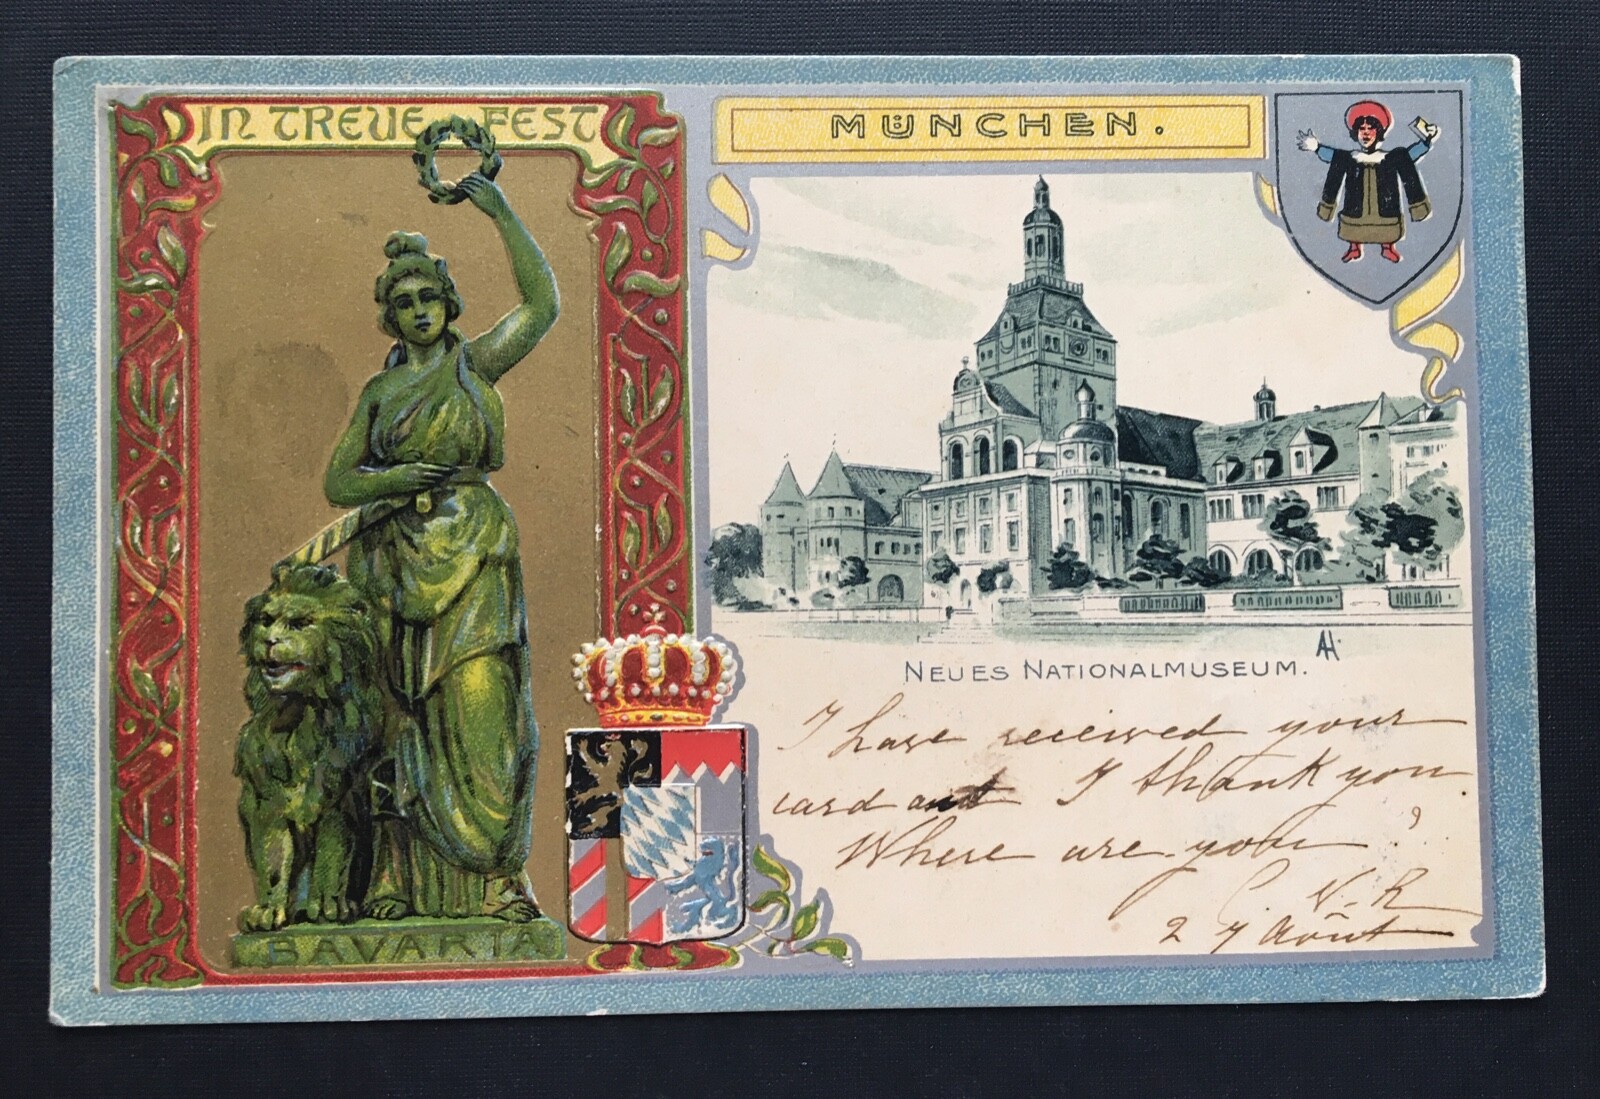 IN TREUE FEST
BAVARIA
MÜNCHEN.
AH
NEUES NATIONALMUSEUM.
I have received your
card and I thank you.
Where are you?
C. V. R
27 Août